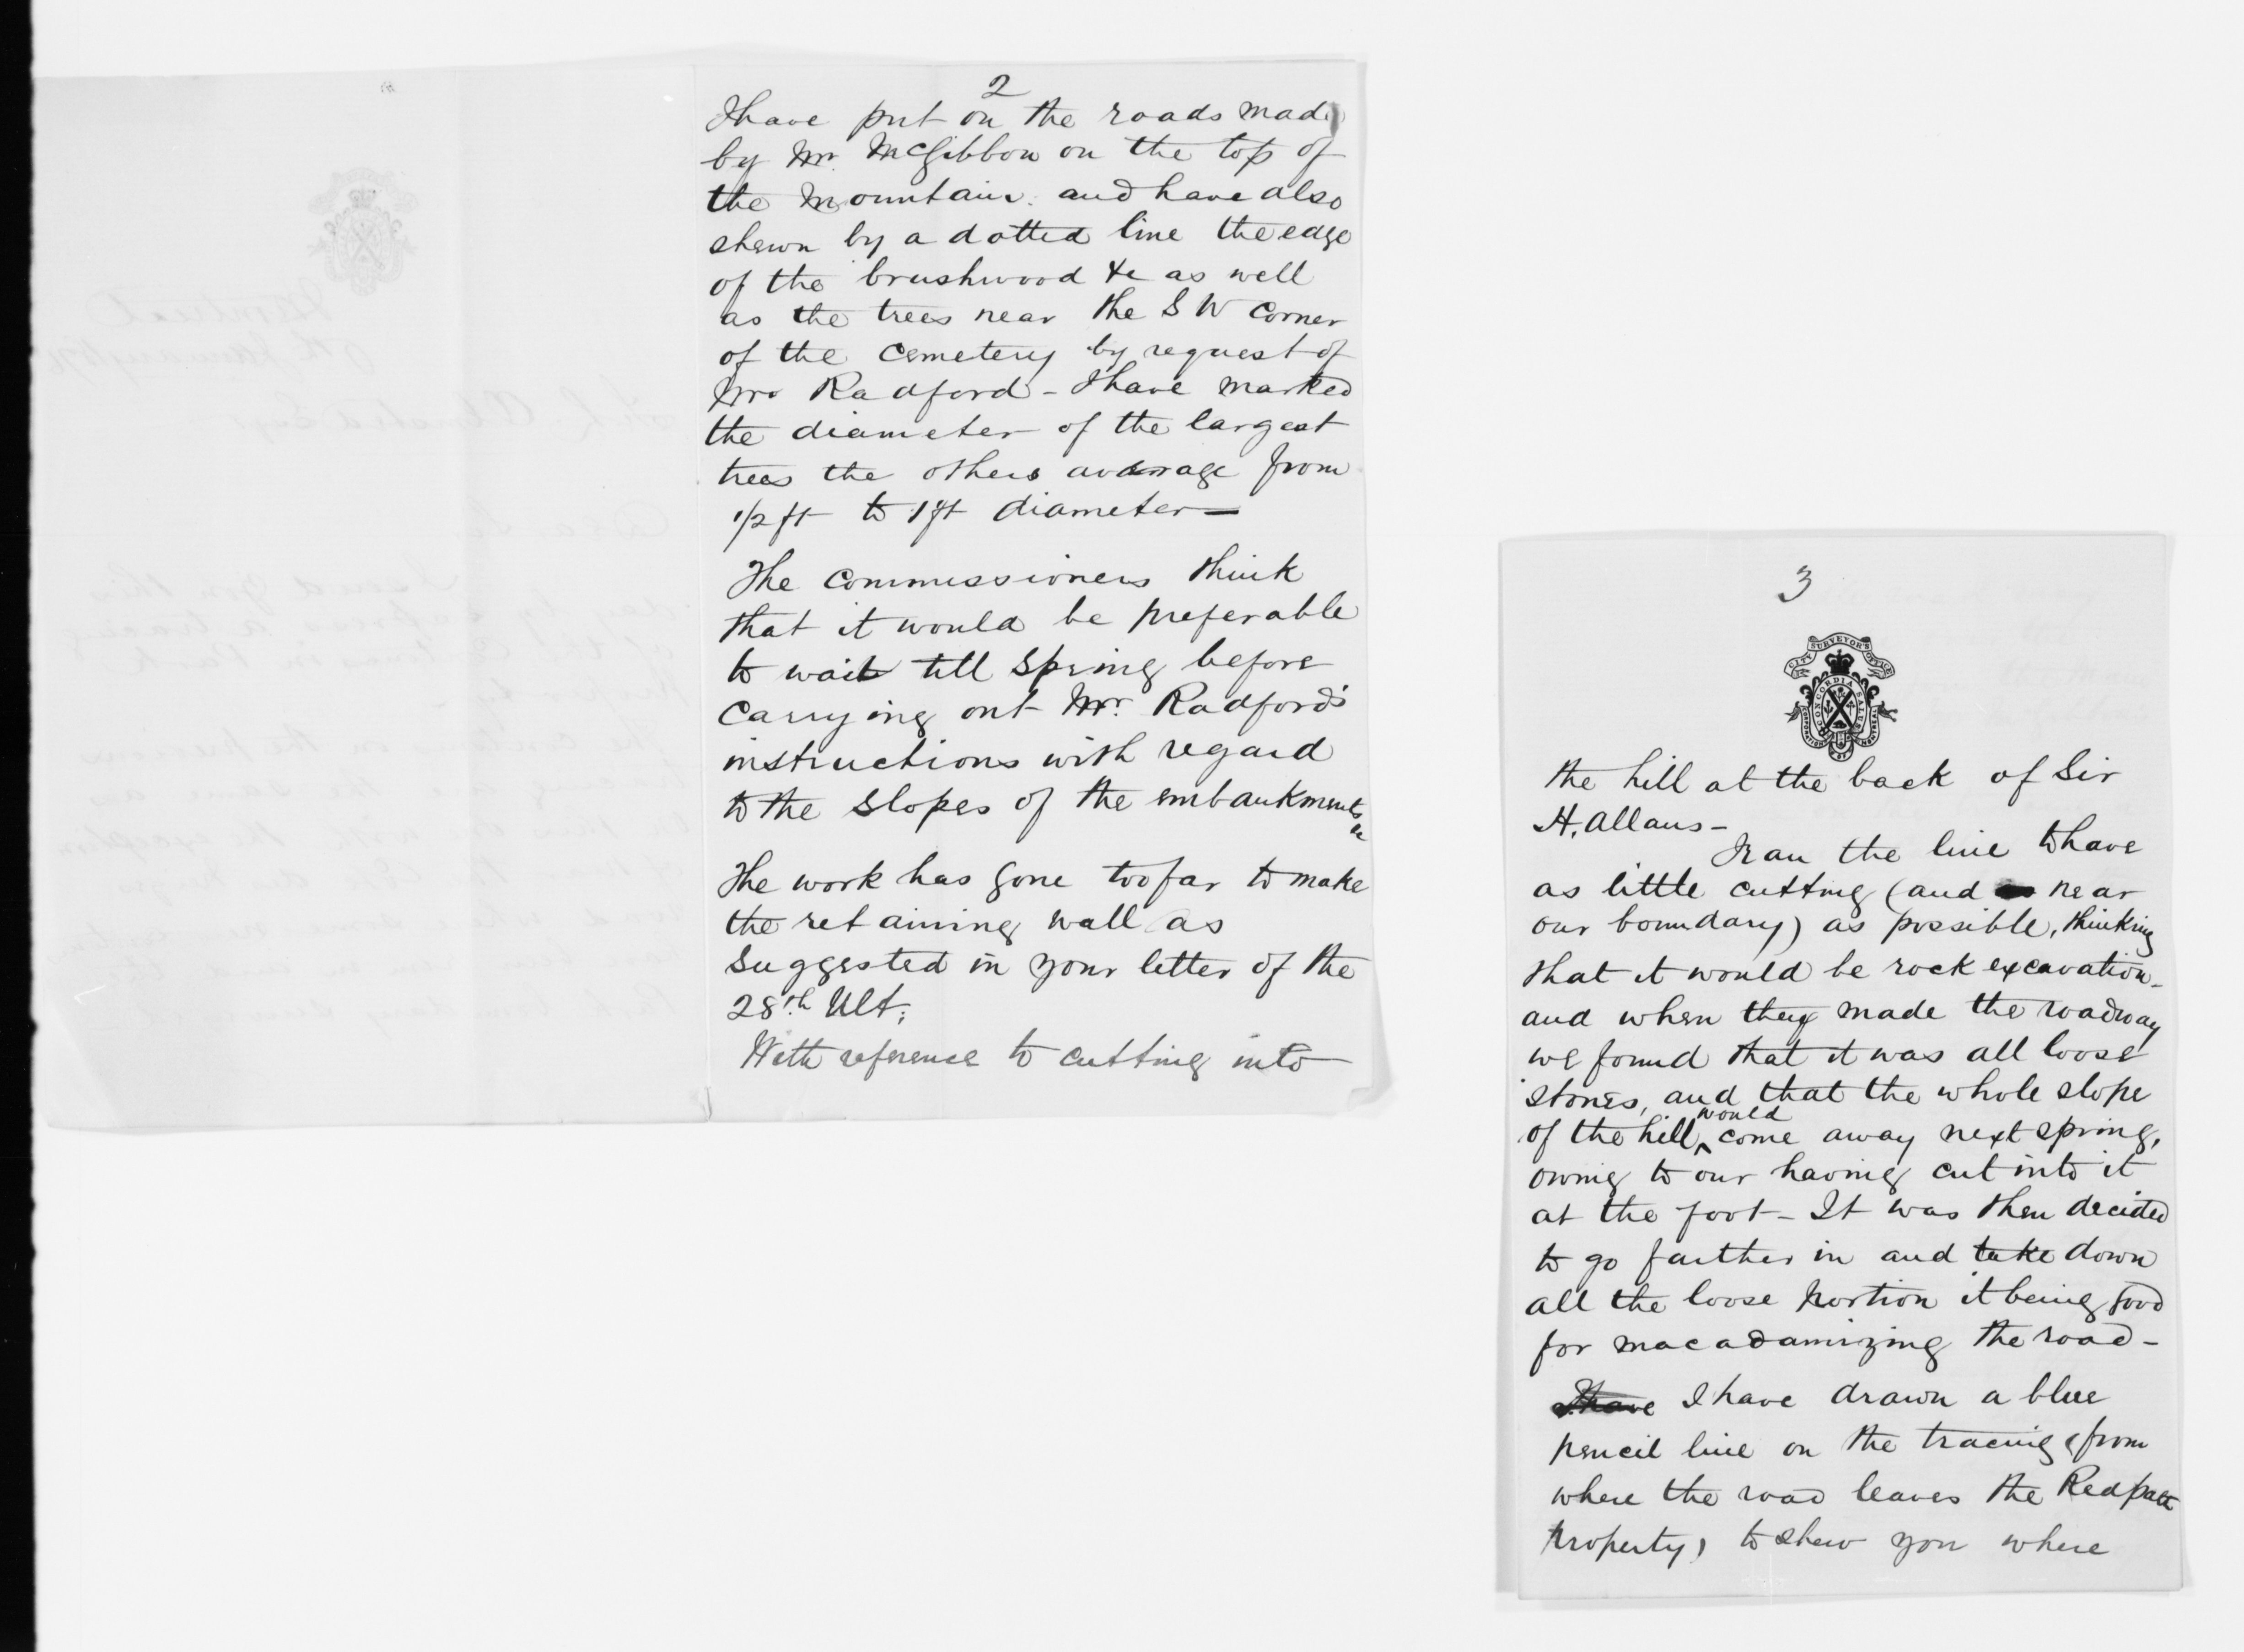 2
I have put on the roads made
by Mr. McGibbon on the top of
the Mountain. and have also
shewn by a dotted line the edge
of the brushwood &c as well
as the trees near the S W Corner
of the Cemetery by request of
Mr Radford - I have marked
the diameter of the largest
trees the others average from
1/2 ft to 1 ft diameter —
The Commissioners think
that it would be preferable
to wait till Spring before
Carrying out Mr. Radford's
instructions with regard
to the slopes of the embankments
&c
The work has gone too far to make
the retaining wall as
Suggested in your letter of the
28th Ult;
With reference to cutting into
3
CITY SURVEYOR'S OFFICE
CONCORDIA SALUS
the hill at the back of Sir
H. Allans -
I ran the line to have
as little cutting (and near
our boundary) as possible, thinking
that it would be rock excavation -
and when they made the roadway
we found that it was all loose
stones, and that the whole slope
of the hill would come away next spring,
owing to our having cut into it
at the foot - It was then decided
to go farther in and take down
all the loose portion it being good
for macadamizing the road -
I have I have drawn a blue
pencil line on the tracing (from
where the road leaves the Redpath
property) to shew you where